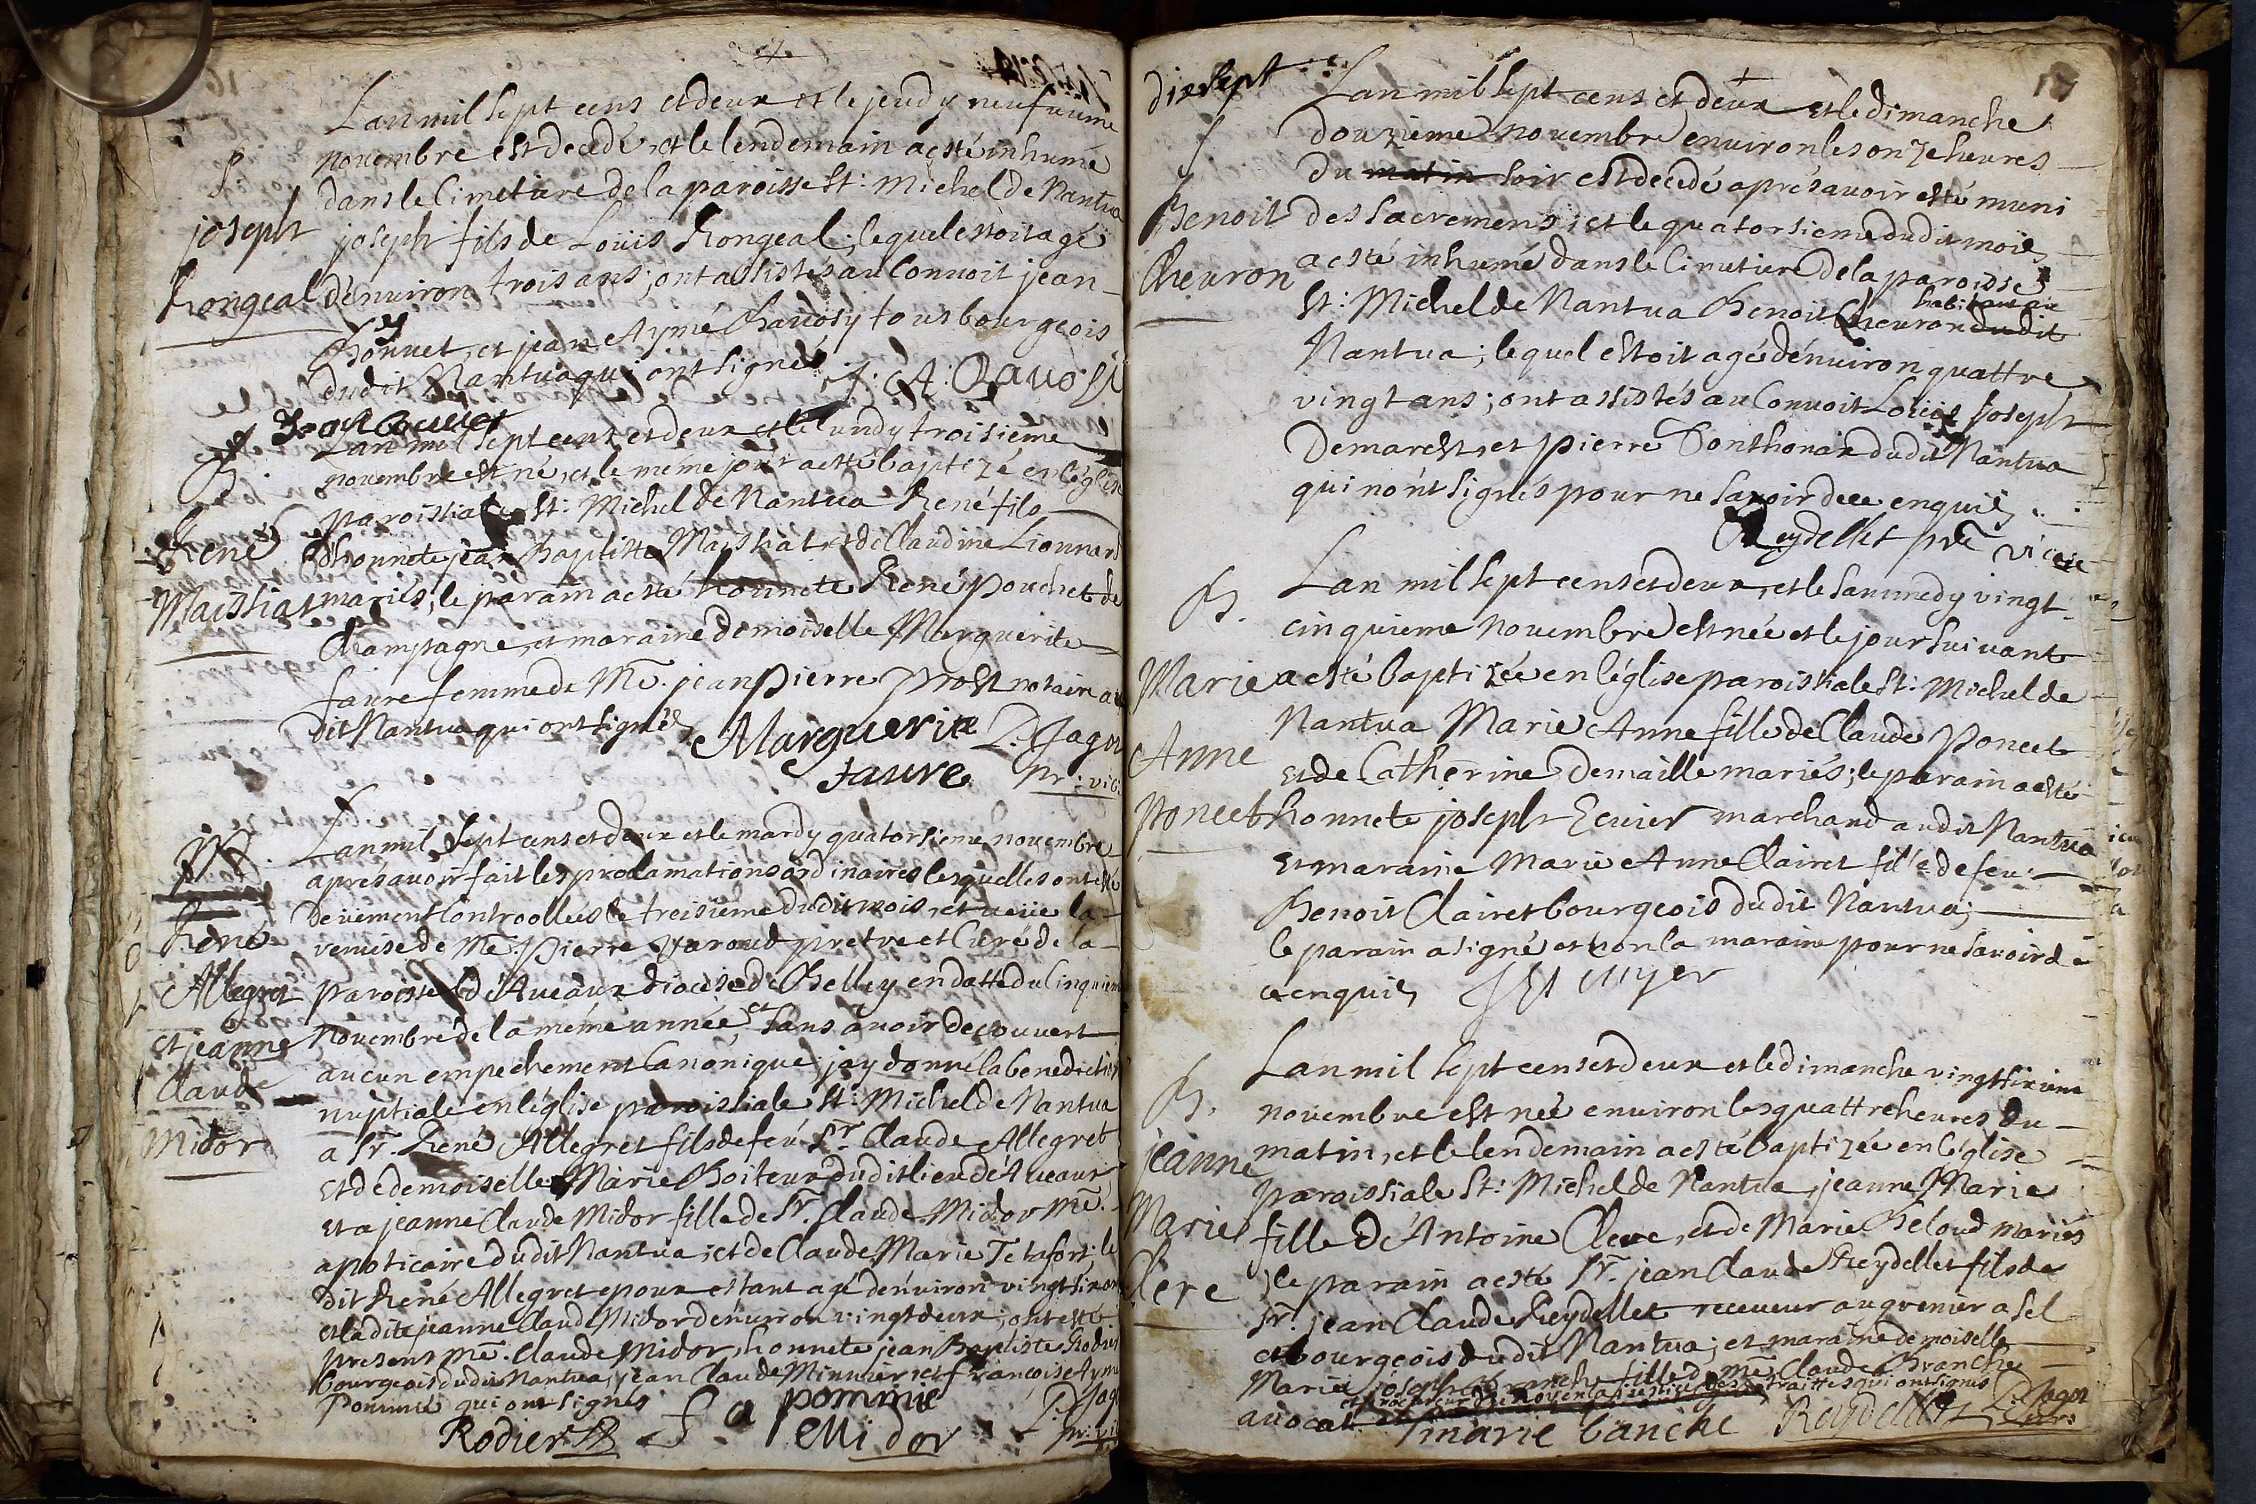 Lan mil sept cens et deux et le jeudy neufuieme
novembre est decedé, et le lendemain a esté inhumé
dans le Cimetiere de la paroisse St: Michel de Nantua
joseph fils de Loüis Rongeal; lequel estoit agé
dénuiron trois ans; ont assistés au Conuoit jean
Bouuet, et jean Aymé Chauosy tous bourgeois
dudit Nantua qui ont signé
S.
joseph
Rongeal
Lan mil sept cens et deux et le lundy troisieme
novembre est né, et le méme jour a esté baptizé en l'églize
paroissiale St: Michel de Nantua René fils
dhonnete jean Baptiste Maissiat et de Claudine Lionnard
mariés; le parain a esté honnete René pouchet de
Champagne, et maraine demoiselle Marguerite
faure femme de Me. jean pierre prost notaire au
dit Nantua qui ont signés
B.
René
Maissiat
Marguerite
faure
P. Jagot
pr: vic:
Lan mil sept cens et deux et le mardy quatorsieme novembre
aprés auoir fait les proclamations ordinaires lesquelles ont esté
deüement Controollées le treisieme dudit mois, et ueüe la
remise de Me. Pierre varoud pretre et Curé de la
paroisse d'Aueaux diocése de Belley en datte du Cinquieme
Novembre de la méme année et sans auoir decouuert
aucun empechement Canonique; jay donné la benediction
nuptiale en l'église paroissiale St: Michel de Nantua
a Sr. René Allegret fils de feu Sr. Claude Allegret
et de demoiselle Marie Boiteux dudit lieu d'Aueaux
et a jeanne Claude Midor fille de Sr. Claude Midor Me.
apoticaire dudit Nantua; et de Claude Marie Tetafort; le
dit René Allegret epoux estant agé dénuiron vingt six ans
et ladite jeanne Claude Midor dénuiron vingt deux; ont esté
presens Me. Claude Midor, honnete jean Baptiste Rodier
bourgeois dudit Nantua, jean Claude Minnier, et françois Aymé
pommie qui ont signés
M.
René
Allegret
et jeanne
Claude
Midor
Rodier
f a pommie
C Midor
P. Jagot
pr: vic
dixsept
17
Lan mil sept cens et deux et le dimanche
douzieme novembre enuiron les onze heures
du matin soir est decedé aprés auoir esté muni
des sacremens; et le quatorsieme dudit mois
a esté inhumé dans le Cimetiere de la paroisse
St: Michel de Nantua Benoit Cheuron dudit
habitant au
Nantua; lequel estoit agé dénuiron quattre
vingt ans; ont assistés au Conuoit Loüis joseph
Demarest, et pierre Tonthonax dudit Nantua
qui nónt signés pour ne sauoir de ce enquis
S
Benoit
Cheuron
Reydellet pre vicaire
Lan mil sept cens et deux, et le sammedy vingt
cinquieme Nouembre est née et le jour suiuant
a esté baptizée en l'église paroissiale St: Michel de
Nantua Marie Anne fille de Claude Poncet
et de Catherine Demaille mariés; le parain a esté
honnete joseph Ecuier marchand audit Nantua
et maraine Marie Anne Clairet fille de feu
Benoit Clairet bourgeois dudit Nantua;
le parain a signé et non la maraine pour ne sauoir de
ce enquis
B.
Marie
Anne
Poncet
Lan mil sept cens et deux et le dimanche vingt sixieme
novembre est née enuiron les quattre heures du
matin, et le lendemain a esté baptizée en l'église
paroissiale St: Michel de Nantua, jeanne Marie
fille d'Antoine Clere, et de Marie Beloud mariés
; le parain a esté Sr. jean Claude Reydellet fils de
Sr. jean Claude Reydellet receueur au grenier a sel
et bourgeois dudit Nantua; et maraine demoiselle
Marie josephte Branche fille de Me Claude Branche
avocat
B.
jeanne
Marie
Clere
marie banche
Reydellet
P. Jagot